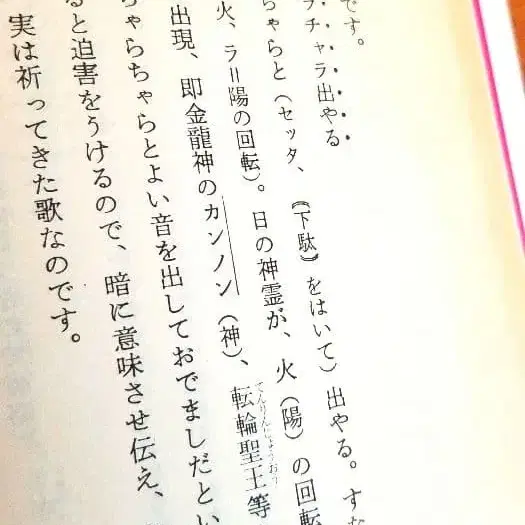 です。
ラチャラ出やる
ちゃらと（セッタ、《下駄》をはいて）出やる。すな
火、ラ＝陽の回転）。日の神霊が、火（陽）の回転
出現、即金龍神のカンノン（神）、転輪聖王等
てんりんじょうおう
ちゃらちゃらとよい音を出しておでましだとい
ると迫害をうけるので、暗に意味させ伝え、
実は祈ってきた歌なのです。